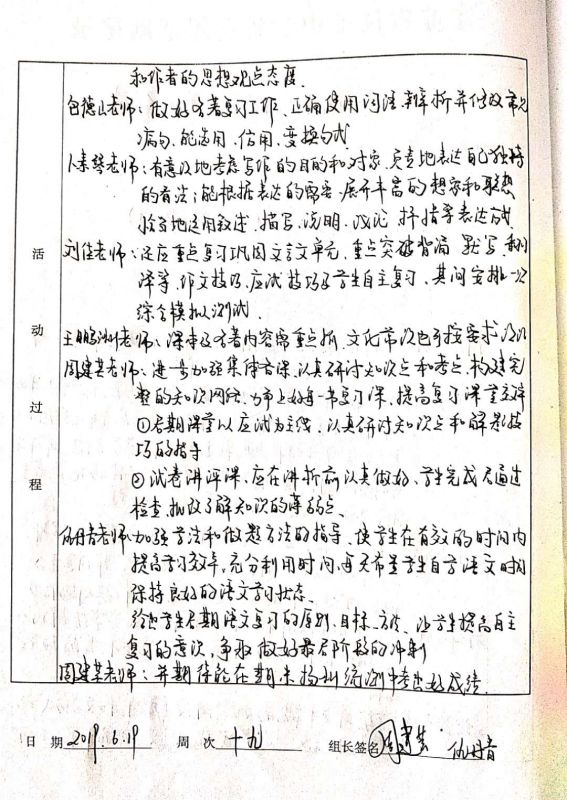 和作者的思想观点态度.
老师：做好名著复习工作、正确使用词语,辨析并修改常见
病句,能选用、仿用、变换句式
老师：有意识地考虑写作的目的和对象,负责地表达自己独特
的看法；能根据表达的需要,展开丰富的想象和联想
恰当地运用叙述、描写、说明、议论、抒情等表达方式
刘佳老师：还应重点复习巩固文言文单元,重点突破背诵、默写、翻
译等,作文技巧,应试技巧及学生自主复习,其间安排一次
综合模拟测试.
王鹏洲老师：课本及名著内容需重点抓,文化常识也可按要求
周建芸老师：进一步加强集体备课,认真研讨知识点和考点,构建完
整的知识网络,力争上好每一节复习课,提高复习课堂
①后期课堂以应试为主线,认真研讨知识点和解题技
巧的指导
②试卷讲评课,应在讲析前认真做好,学生完成后通过
检查,批改了解知识的薄弱点.
仇丹青老师：加强学法和做题方法的指导、使学生在有效的时间内
提高学习效率,充分利用时间,每天布置学生自学语文时间
保持良好的语文学习状态.
学生后期语文复习的原则、目标、方法、让学生提高自主
复习的意识,争取做好最后阶段的冲刺
周建芸老师：并期待能在期末扬州统测中考出好成绩.
活
动
过
程
日 期 2019.6.19 周 次 十九 组长签名 周建芸 仇丹青